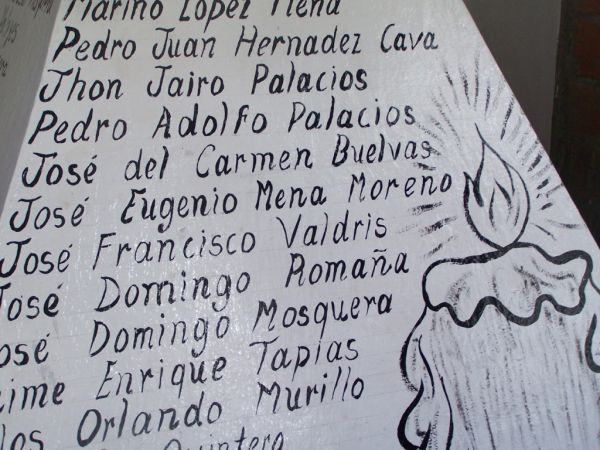 Marino Lopez Mena
Pedro Juan Hernadez Cava
Jhon Jairo Palacios
Pedro Adolfo Palacios
José del Carmen Buelvas
José Eugenio Mena Moreno
José Francisco Valdris
José Domingo Romaña
osé Domingo Mosquera
ime Enrique Tapias
los Orlando Murillo
Quintero